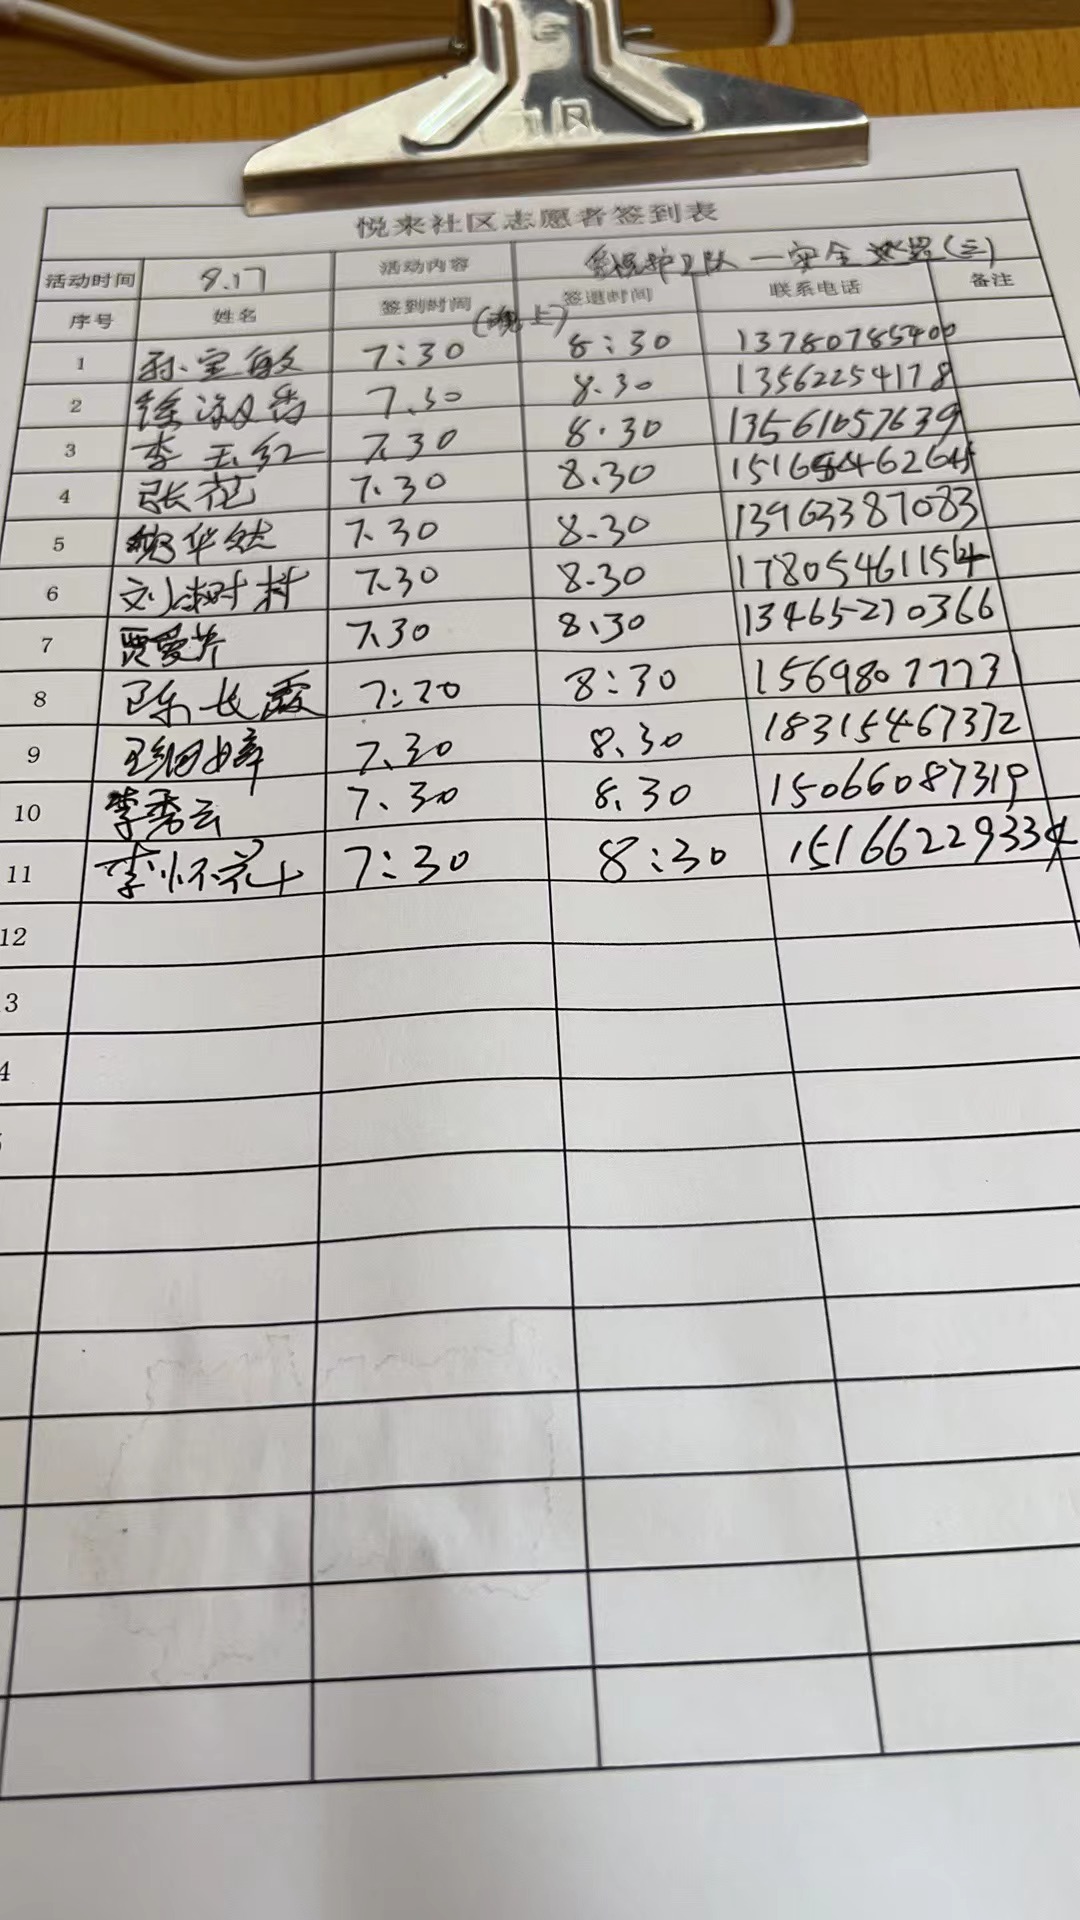 悦来社区志愿者签到表
活动时间 8.17 活动内容 护卫队一安全 (三)
序号 姓名 签到时间 (晚上) 签退时间 联系电话 备注
1 孙宝敏 7:30 8:30 13780785400
2 徐淑香 7.30 8.30 13562254178
3 李玉红 7.30 8.30 13561057639
4 张花 7.30 8.30
5 华然 7.30 8.30 13963387083
6 刘树村 7.30 8.30 17805461154
7 贾爱芹 7.30 8.30 13465270366
8 陈长霞 7:20 8:30 15698077773
9 王 婷 7.30 8.30 18315467372
10 李秀云 7.30 8.30 15066087319
11 李怀花 7:30 8:30 15166229334
12
3
4